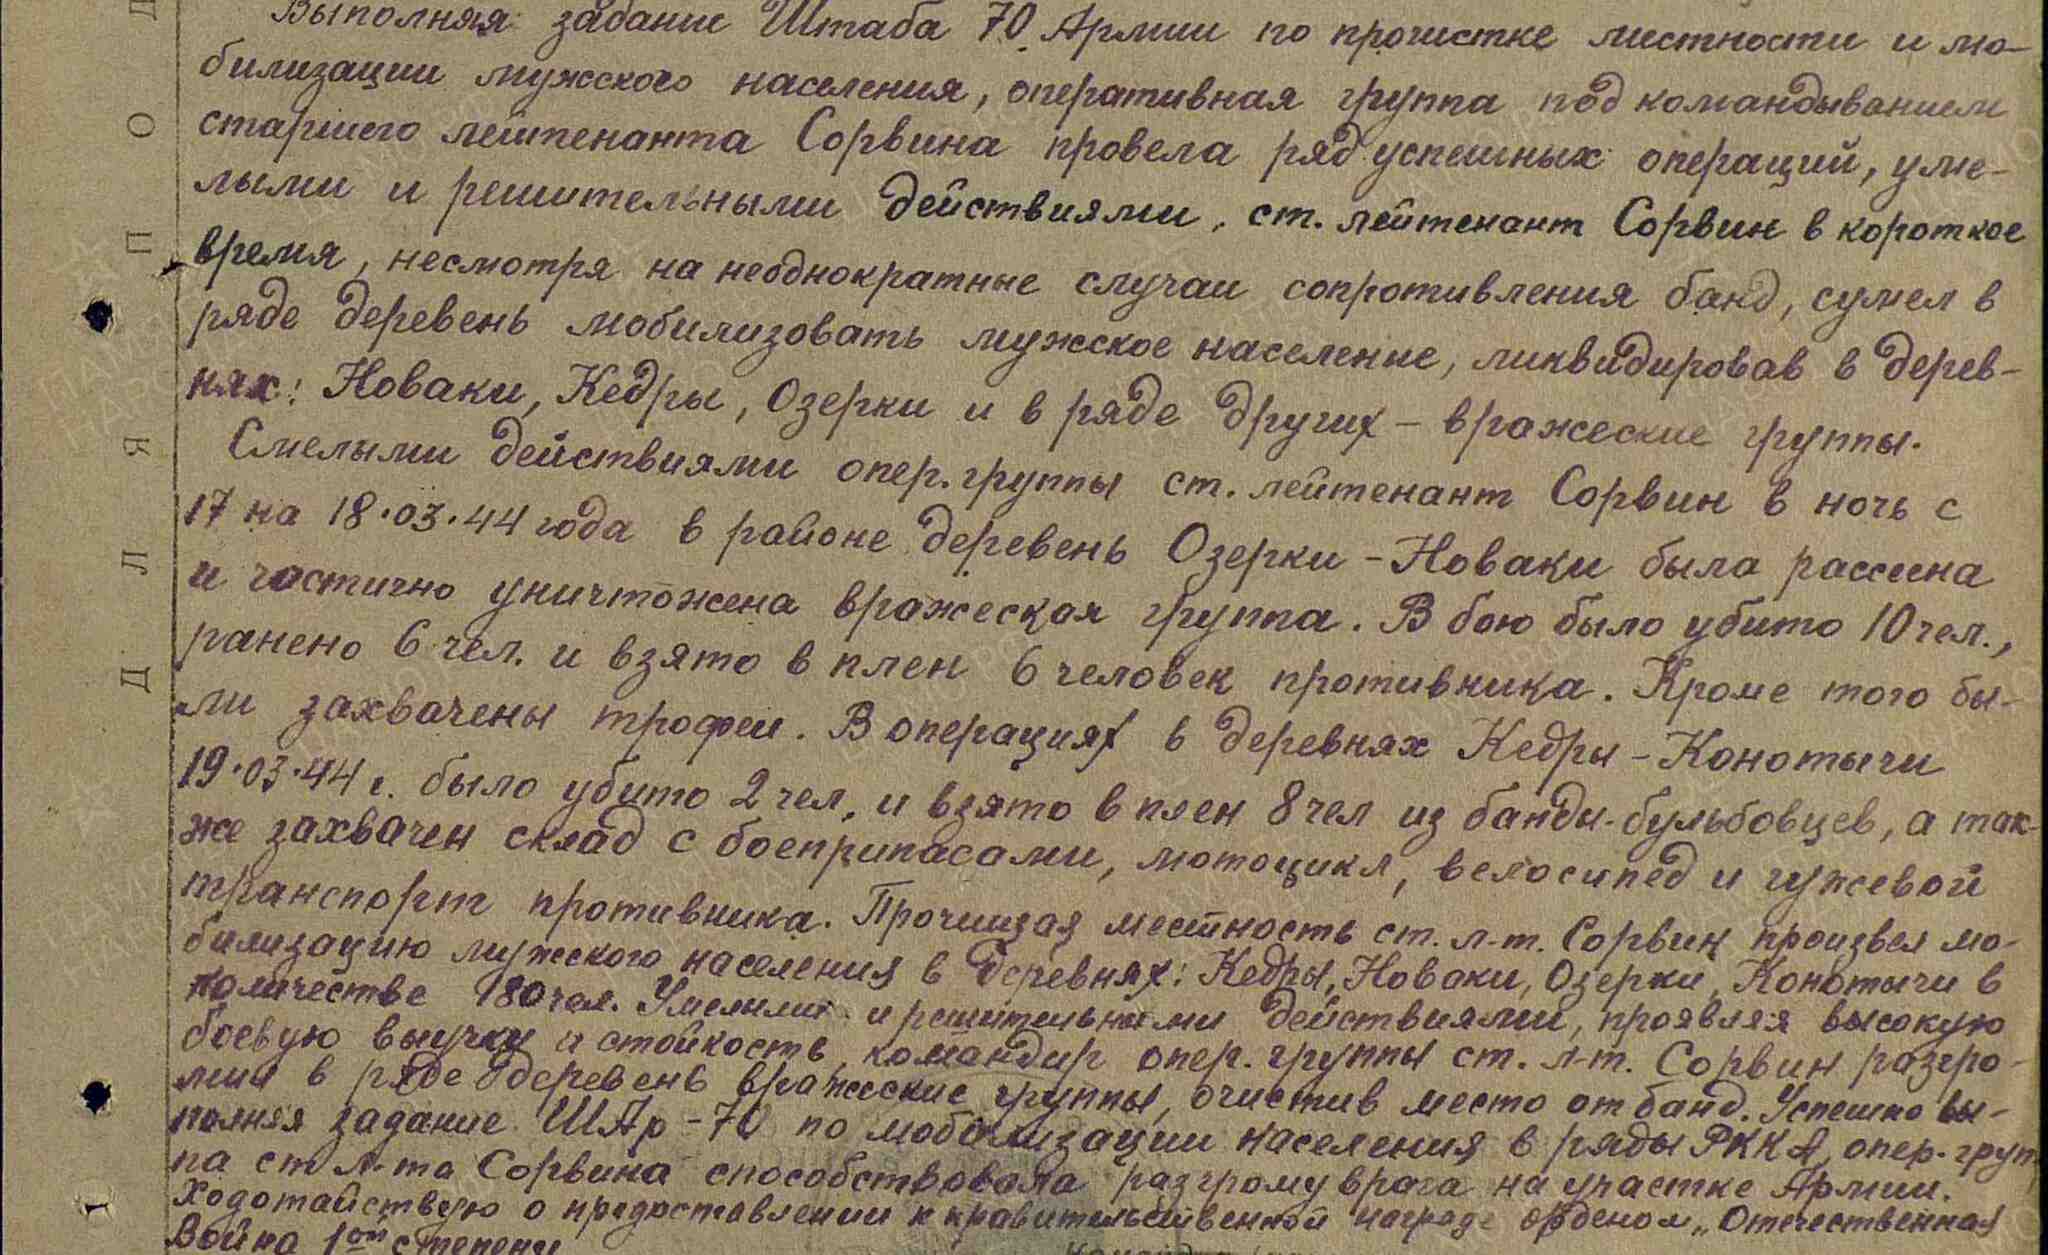 Выполняя задание Штаба 70 Армии по прочистке местности и мо-
билизации мужского населения, оперативная группа под командыванием
старшего лейтенанта Сорвина провела ряд успешных операций, уме-
лыми и решительными действиями, ст. лейтенант Сорвин в короткое
время, несмотря на неоднократные случаи сопротивления банд, сумел в
ряде деревень мобилизовать мужское население, ликвидировав в дерев-
нях: Новаки, Кедры, Озерки и в ряде других – вражеские группы.
Смелыми действиями опер. группы ст. лейтенант Сорвин в ночь с
17 на 18.03.44 года в районе деревень Озерки – Новаки была рассеена
и частично уничтожена вражеская группа. В бою было убито 10 чел.,
ранено 6 чел. и взято в плен 6 человек противника. Кроме того бы-
ли захвачены трофеи. В операциях в деревнях Кедры – Конотычи
19.03.44 г. было убито 2 чел. и взято в плен 8 чел из банды-бульбовцев, а так-
же захвачен склад с боеприпасами, мотоцикл, велосипед и гужевой
транспорт противника. Прочищая местность ст. л-т. Сорвин произвел мо-
билизацию мужского населения в деревнях: Кедры, Новаки, Озерки, Конотычи в
количестве 180 чел. Умелыми и решительными действиями, проявляя высокую
боевую выучку и стойкость, командир опер. группы ст. л-т. Сорвин разгро-
мил в ряде деревень вражеские группы, очистив место от банд. Успешно вы-
полняя задание ШАр-70 по мобилизации населения в ряды РККА, опер. груп-
па ст л-та Сорвина способствовала разгрому врага на участке Армии.
Ходотайствую о предоставлении к правительственной награде орденом „Отечественная
Война 1ой степени
ДЛЯ ПОД